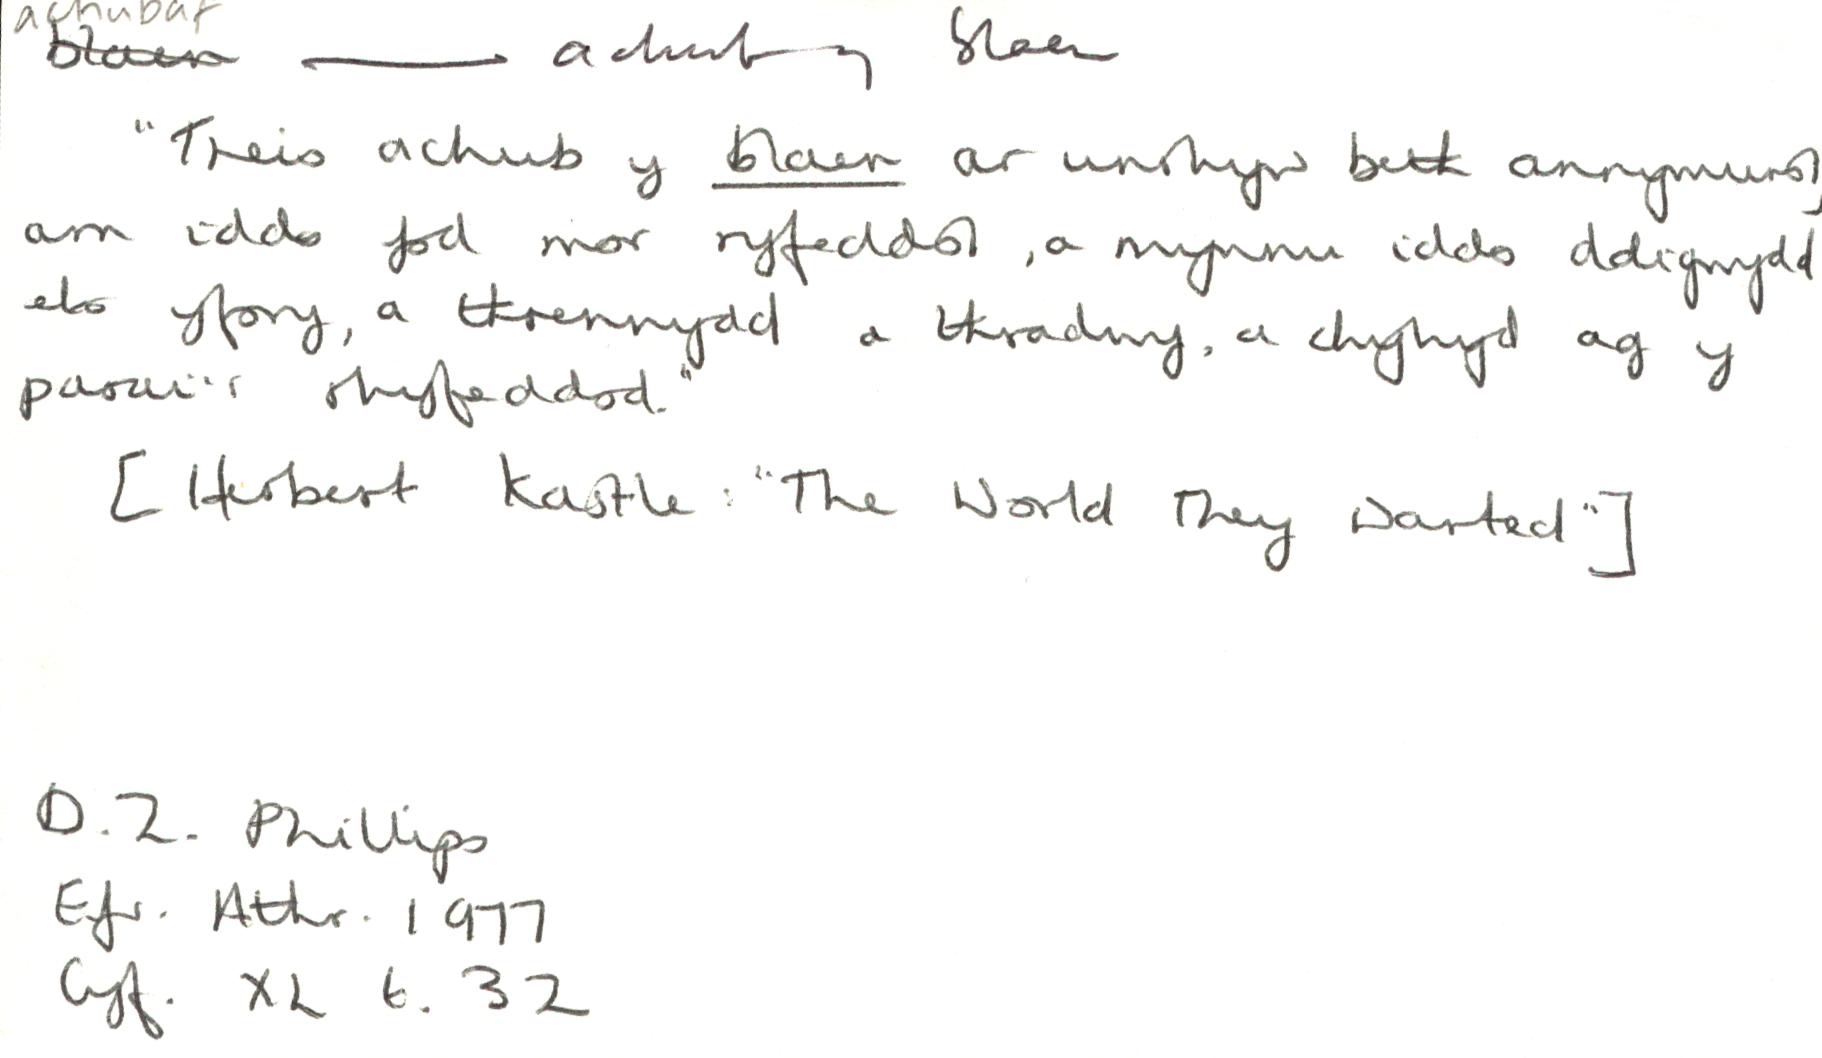 achubaf
blaen — achub y blaen
"Treis achub y blaen ar unrhyw beth annymunol,
am iddo fod mor ryfeddol, a mynnu iddo ddigwydd
eto yfory, a thrennydd a thradwy, a chyhyd ag y
parai'r rhyfeddod."
[Herbert Kastle: "The World They Wanted"]
D.Z. Phillips
Efr. Athr. 1977
Cyf. XL t. 32